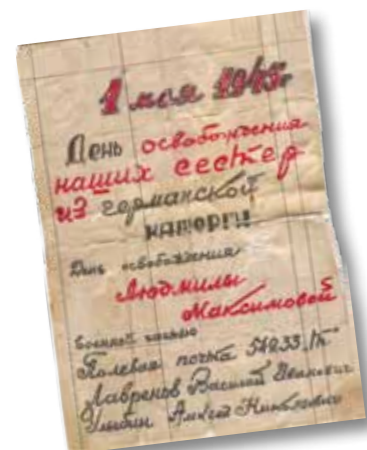 1 мая 1945г
День освобождения
наших сестер
из германской
каторги!
День освобождения
Людмилы
Максимовой
Военной частью
Полевая почта
Лавренов Василий Иванович
Алексей Николаевич